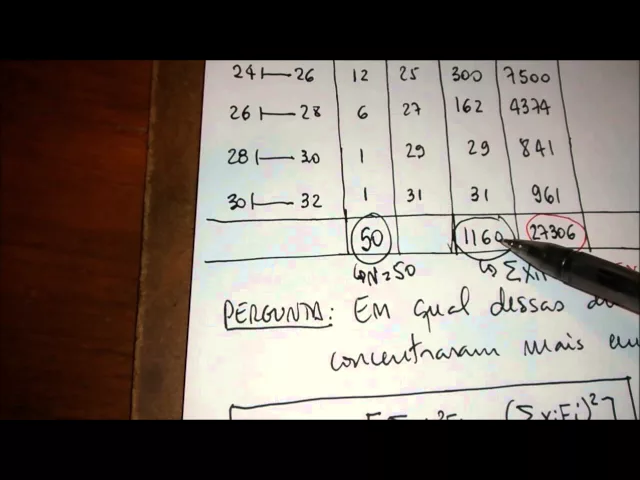 24 |— 26 12 25 300 7500
26 |— 28 6 27 162 4374
28 |— 30 1 29 29 841
30 |— 32 1 31 31 961
50 1160 27306
↳ N = 50 ↳ Σxi
PERGUNTA: Em qual dessas
concentraram mais em
(ΣxiFi)²